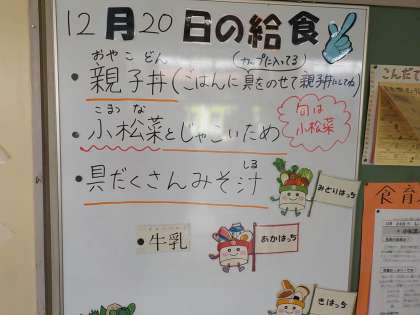 12月20日の給食
おやこどん
(カップに入ってる)
・親子丼(ごはんに具をのせて親子丼にしてね)
こまつな
・小松菜とじゃこいため
旬は
小松菜
しる
・具だくさんみそ汁
みどりはっち
・牛乳
あかはっち
きはっち
こんだて
食育